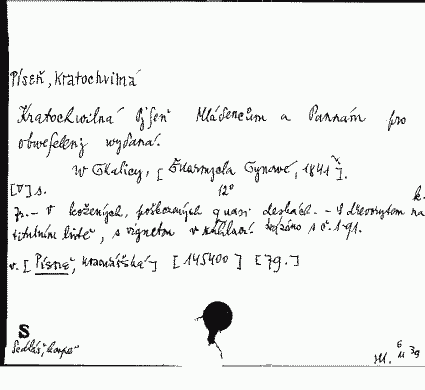 Píseň, kratochvilná
Kratochwilná Pjseň Mládencům a Pannám pro
obweselenj wydaná.
W Skalicy, [Škarnycla Synowé, 1841].
[V] s. 12° k.
Jz. - V kožených, poškozených quasi deskách. - S dřevorytem na
titulním listě, s vignetou v záhlaví. Sváz
áno s č. 1-91.
v. [Písně, kramářská] [145400] [79.]
S
Sedlář, Kaspe
M. 6 11 39